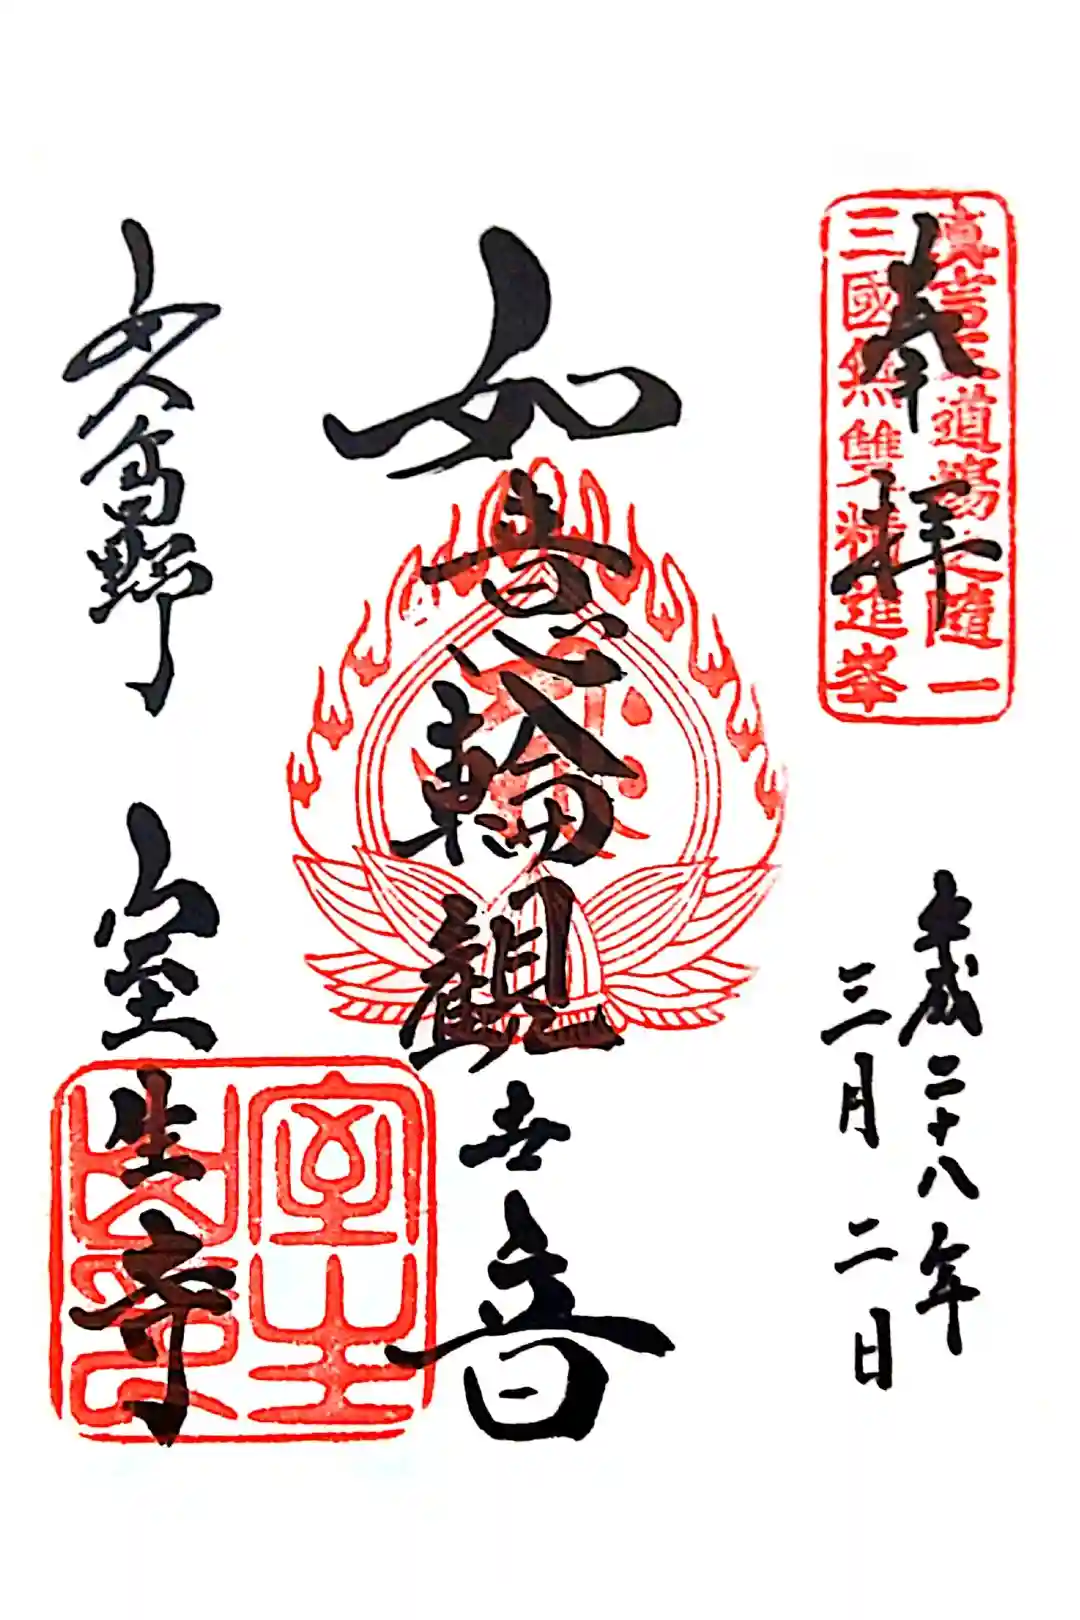 奉拝
真言王道場之随一
三國無雙精進峯
平成二十八年
三月二日
如意輪観世音
女人高野
室生寺